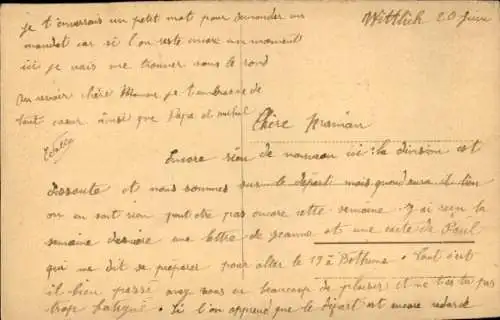 Wittlich 20 Juin
Chère Maman
Encore rien de nouveau ici : la division est
dissoute et nous sommes sur le départ mais quand aura il lieu
on en sait rien peut être pas encore cette semaine. J'ai reçu la
semaine dernière une lettre de Jeanne et une carte de Paul
qui me dit se préparer pour aller le 19 à Béthune. Tout s'est
il bien passé avez vous eu beaucoup de plaisir et ne t'es tu pas
trop fatigué. Si l'on apprend que le départ est encore retardé
je t'enverrais un petit mot pour demander un
mandat car si l'on reste encore un moment
ici je vais me trouver sans le rond
Au revoir chère Maman je t'embrasse de
tout coeur ainsi que Papa et